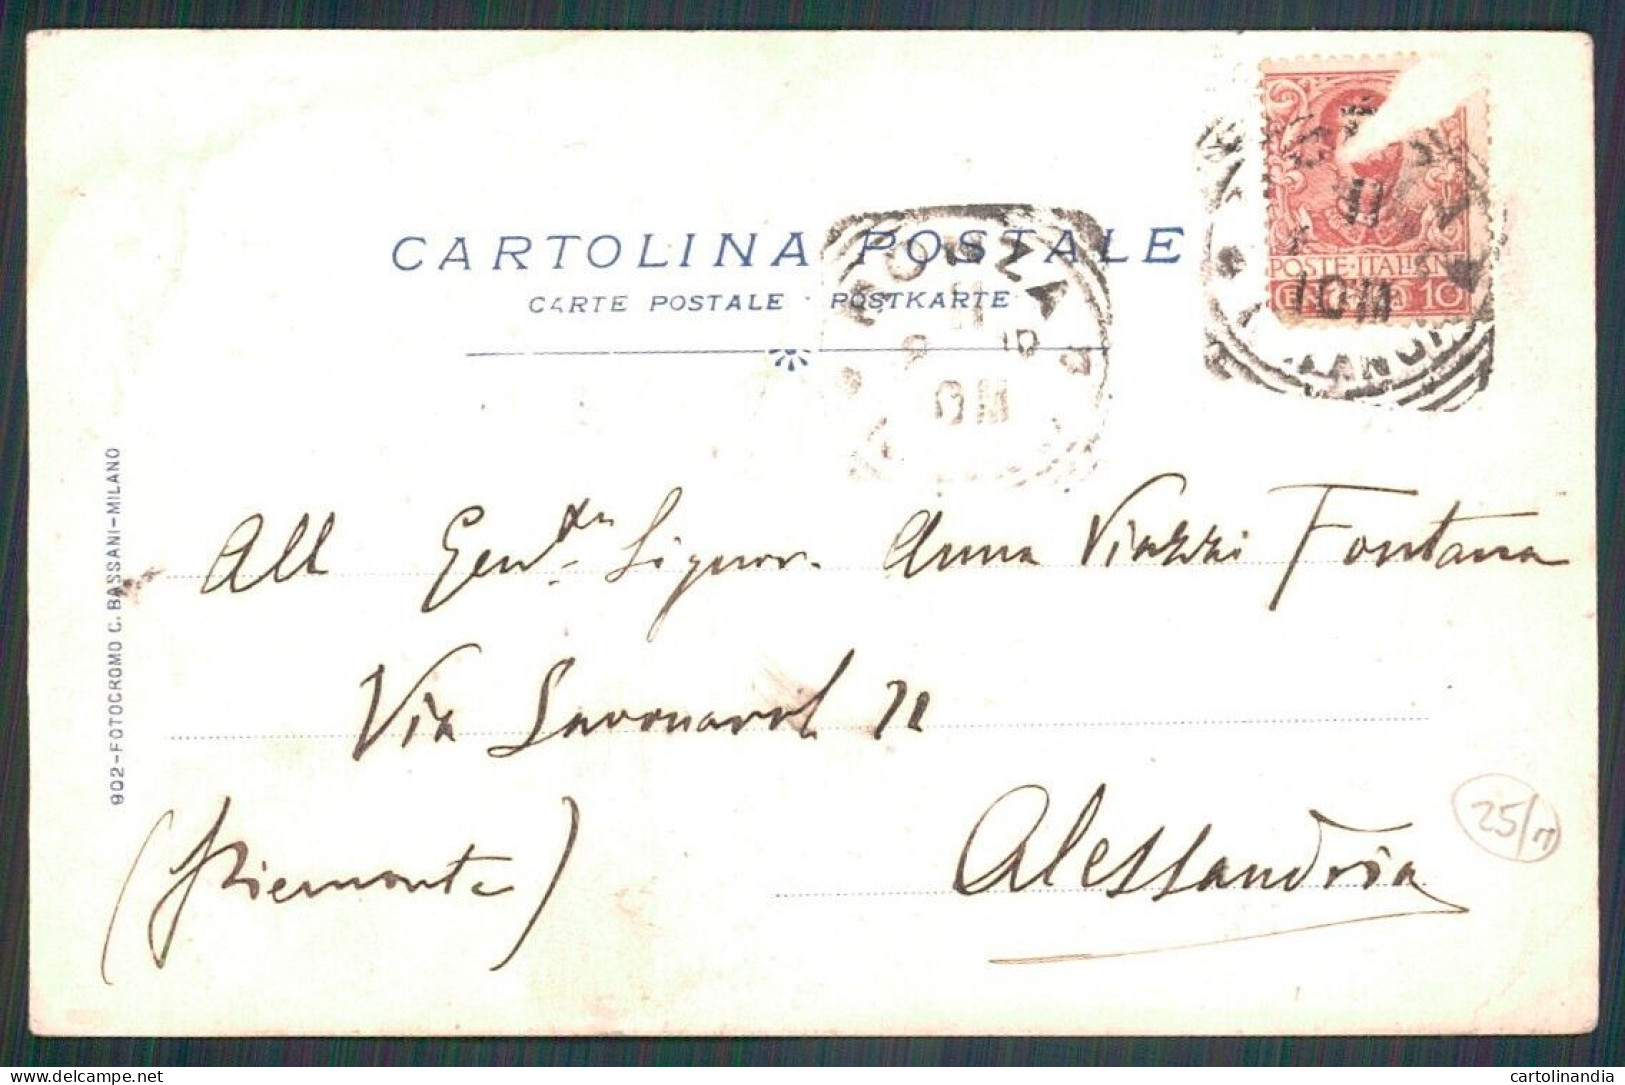 CARTOLINA POSTALE
CARTE POSTALE · POSTKARTE
MONZA
POSTE·ITALIANE
10
902-FOTOCROMO C. BASSANI-MILANO
All Gent. Signor. Anna Viazzi Fontana
Via Savonarol
(Piemonte)
Alessandria
25/
cartolinandia